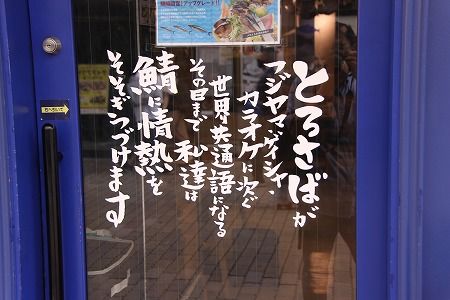 とろさばが
フジヤマ、ゲイシャ、
カラオケに次ぐ
世界共通語になる
その日まで 私達は
鯖に情熱を
そそぎつづけます